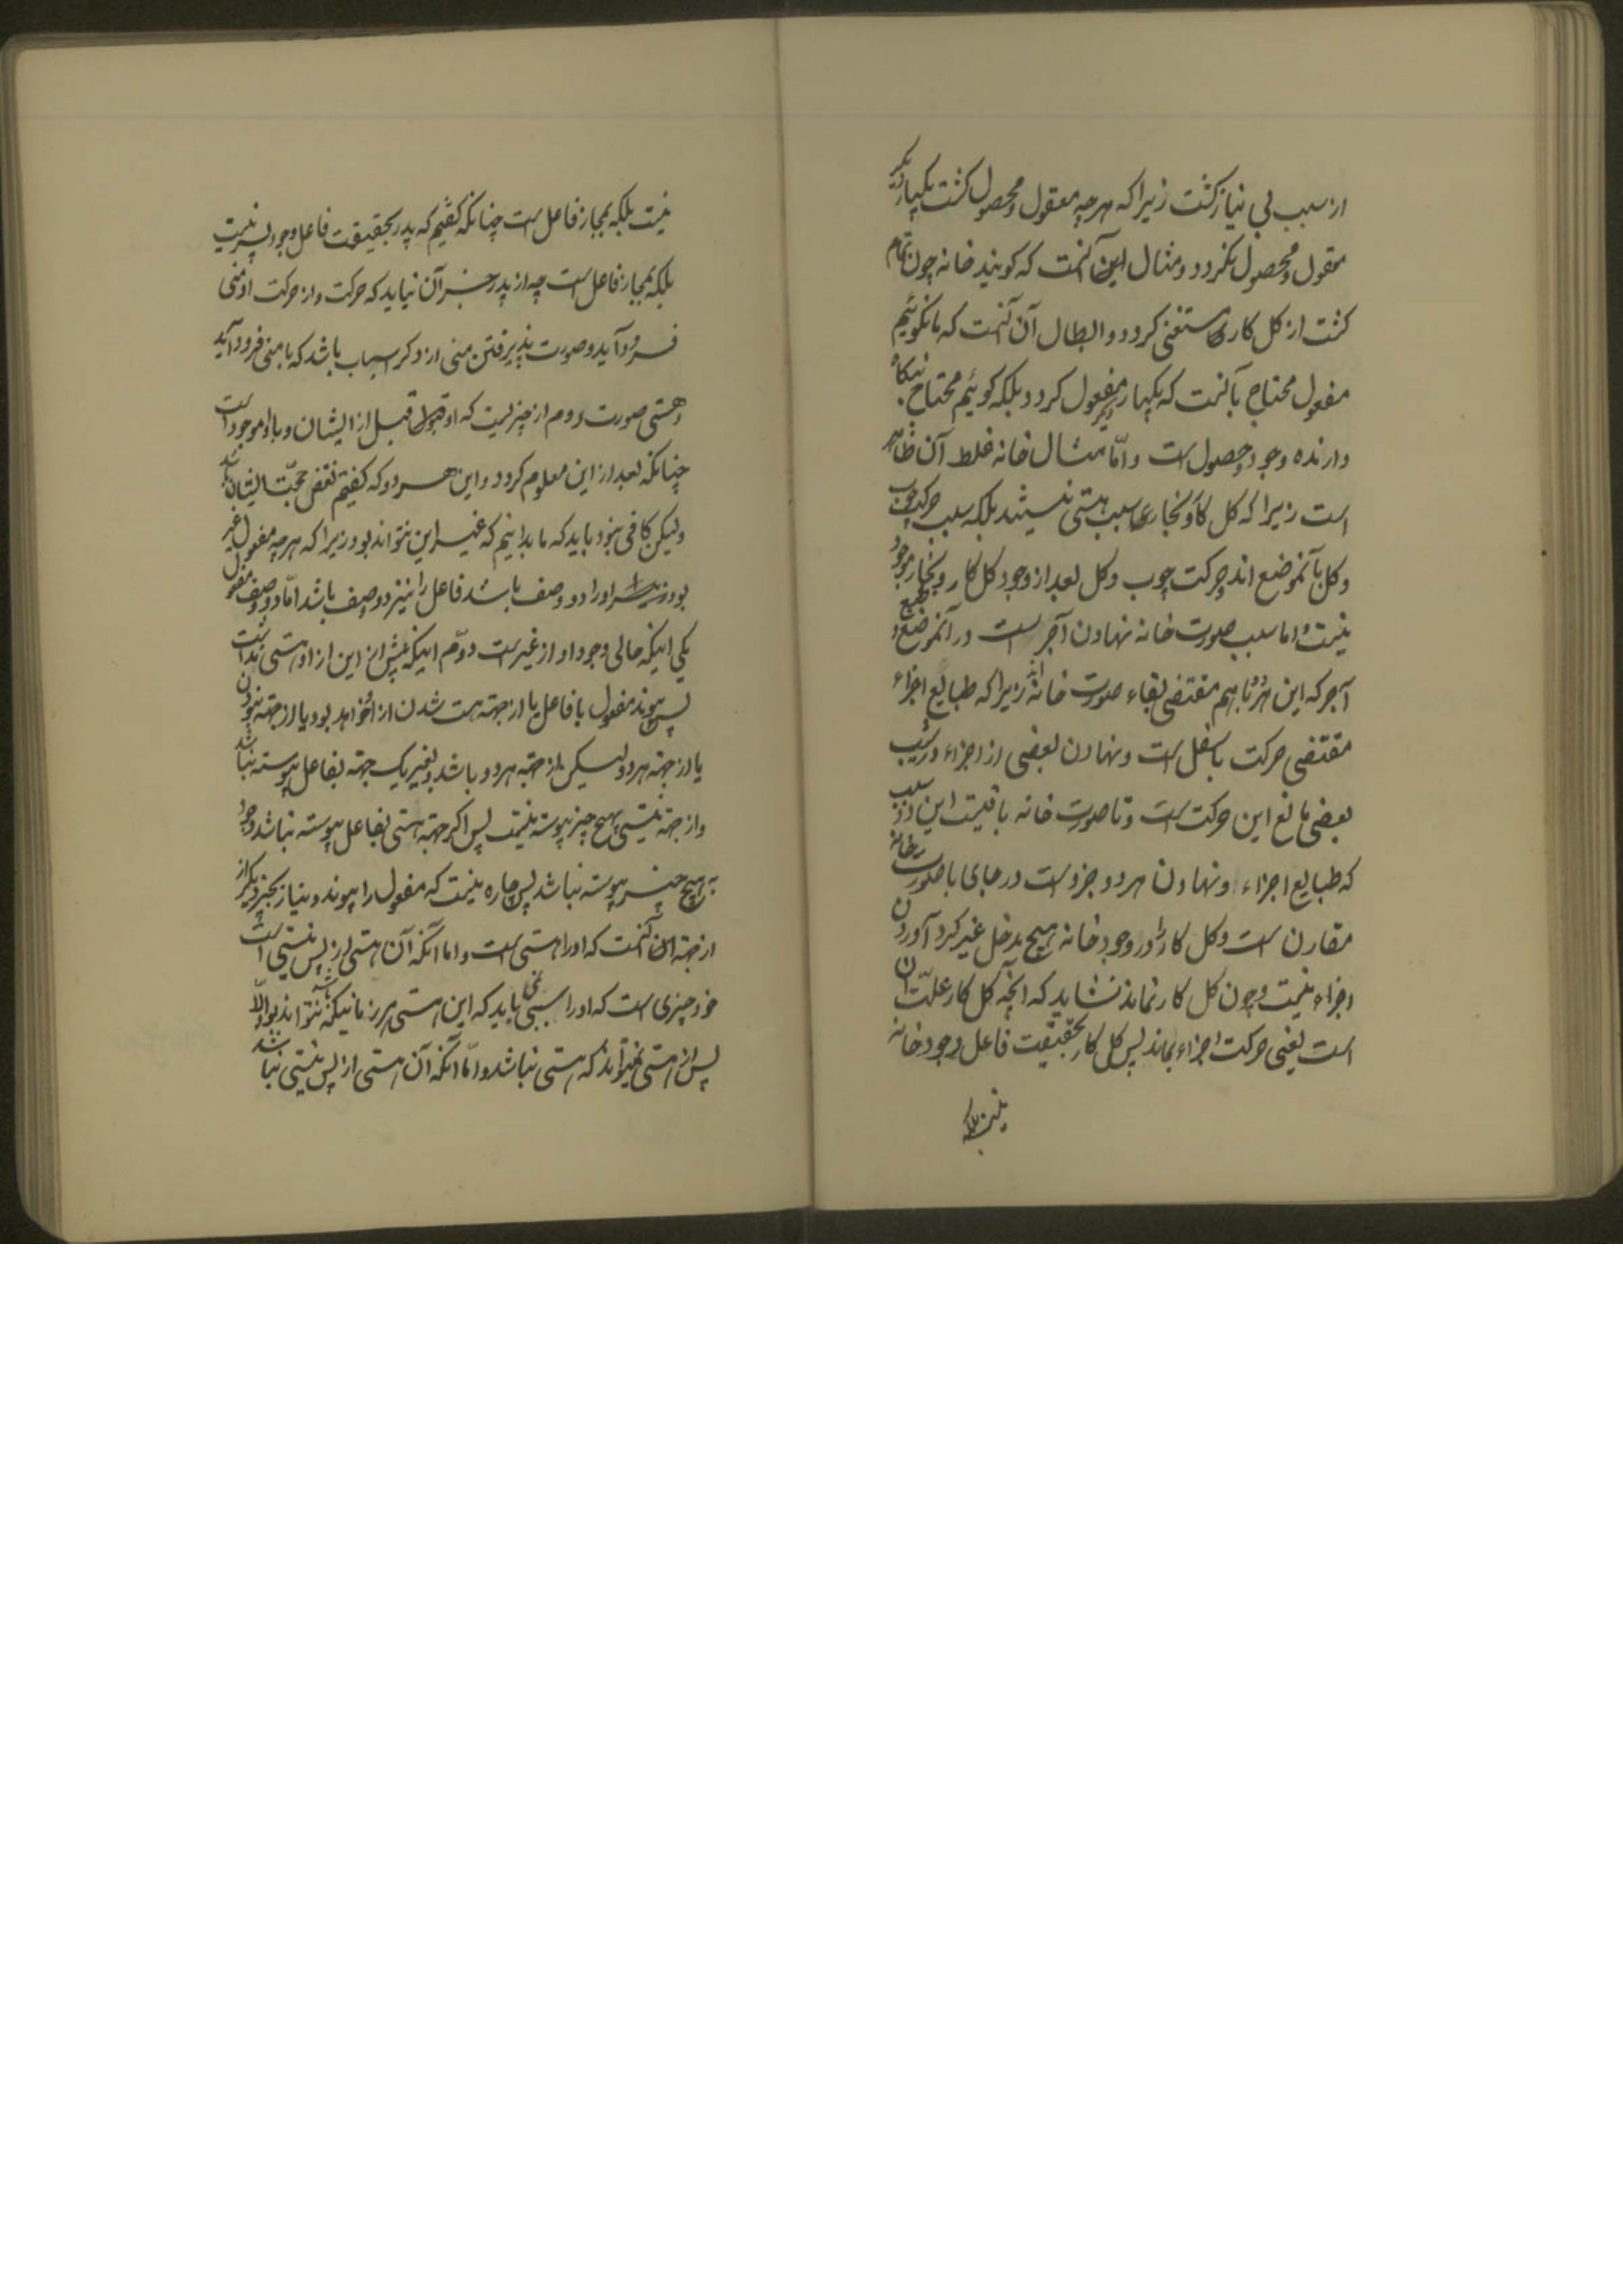 از سبب بی نیاز گشت زیرا که هرچه معقول و محصول گشت یکبار دیگر
معقول و محصول نگردد و مثال این آنست که گویند خانه چون تمام
گشت از گل کار مستغنی گردد و ابطال آن آنست که ما نگوئیم
مفعول محتاج بآنست که یکبار دیگر مفعول گردد بلکه گوئیم محتاج
دارنده وجود و حصول است و امّا مثال خانه غلط آن ظاهر
است زیرا که گل کار و نجار سبب هستی نیستند بلکه سبب حرکت چوب
و گل بآنموضع اند و حرکت چوب و گل بعد از وجود گل کار و نجار موجود
نیست و اما سبب صورت خانه نهادن آجر است در آنموضع و طبع
آجر که این هر دو باهم مقتضی بقاء صورت خانه اند زیرا که طبایع اجزاء
مقتضی حرکت باسفل است و نهادن بعضی از اجزاء در شیب
بعضی مانع این حرکت است و تا صورت خانه باقیست این دو سبب
که طبایع اجزاء و نهادن هر دو جزو است در جای با صورت خانه
مقارن است و گل کار را در وجود خانه هیچ مدخل غیر گرد آوردن
اجزاء نیست و چون گل کار نماند نشاید که آنچه گل کار علّت آن
است یعنی حرکت اجزاء بماند پس گل کار بحقیقت فاعل وجود خانه
نیست بلکه
نیست بلکه بمجاز فاعل است چنانکه گفتیم که پدر بحقیقت فاعل وجود پسر نیست
بلکه بمجاز فاعل است چه از پدر جز آن نیاید که حرکت و از حرکت او منی
فرود آید و صورت پذیرفتن منی از دگر اسباب باشد که با منی فرود آید
و هستی صورت مردم از چیزیست که او قبل از ایشان و با او موجود است
چنانکه بعد از این معلوم گردد و این هر دو که گفتیم نقض حجّت ایشان باشد
ولیکن کافی نبود باید که ما بدانیم که غیر این نتواند بود زیرا که هرچه مفعول غیر
بود او را دو وصف باشد فاعل را نیز دو وصف باشد امّا دو وصف مفعول
یکی اینکه حالی وجود او از غیر است دوّم اینکه پیش از این از او هستی نداشت
پس پیوند مفعول با فاعل یا از جهته هست شدن از او خواهد بود یا از جهته نبودن
یا از جهته هر دو لیکن از جهته هر دو باشد و بغیر یک جهته بفاعل پیوسته نباشد
و از جهته نیستی بهیچ چیز پیوسته نیست پس اگر جهته هستی بفاعل پیوسته نباشد وجود
به هیچ چیز پیوسته نباشد پس چاره نیست که مفعول را پیوند و نیاز بچیز دیگر از
از جهته آن آنست که او را هستی است و اما آنکه آن هستی از پس نیستی است
خود چیزی است که او را سببی نمی باید که این هستی هر زمانیکه باشد نتواند بود الّا
پس از هستی نمیتواند که هستی نباشد و امّا آنکه آن هستی از پس نیستی نباشد